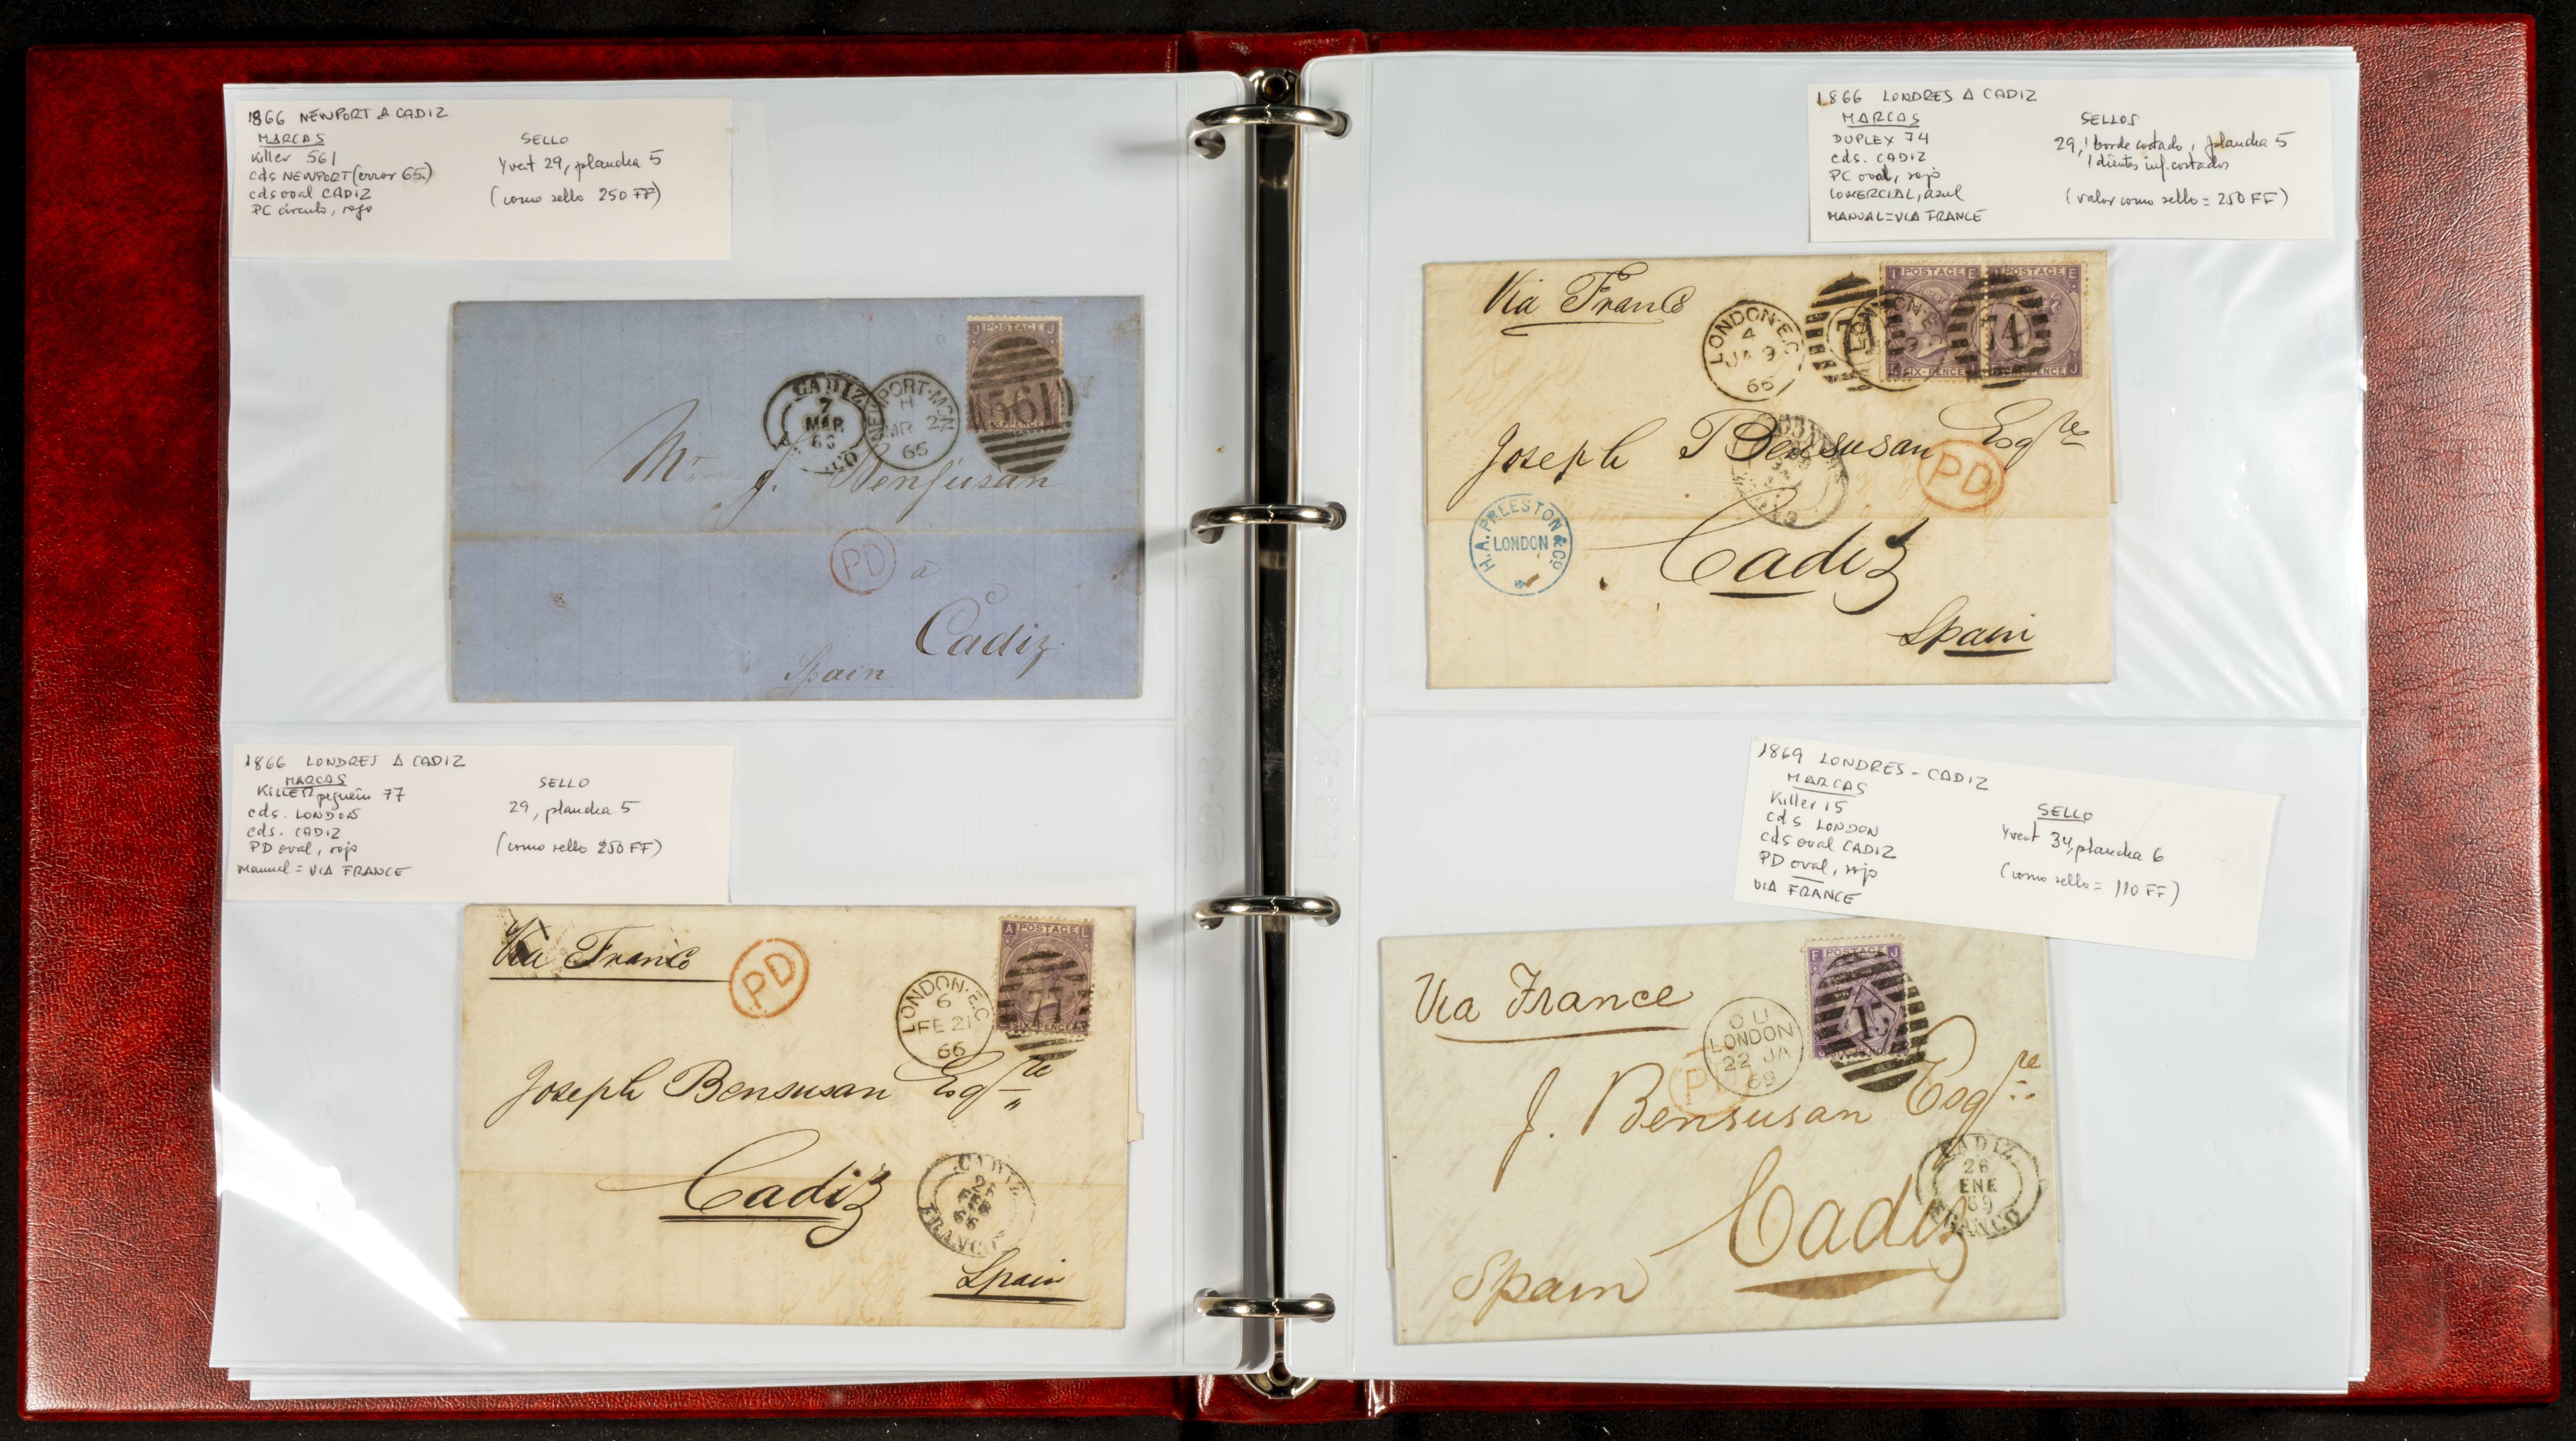 1866 NEWPORT A CADIZ
MARCAS
Killer 561
cds NEWPORT (error 65)
cds oval CADIZ
PC círculo, rojo
SELLO
Yvert 29, plancha 5
(como sello 250 FF)
J POSTAGE J
561
CADIZ
7
MAR
66
NEWPORT-MON
H
MR 2
65
Mr. J. Bensusan
PD
à
Cadiz
Spain
1866 LONDRES A CADIZ
MARCAS
KILLER pequeño 77
cds. LONDON
cds. CADIZ
PD oval, rojo
Manual = VIA FRANCE
SELLO
29, plancha 5
(como sello 250 FF)
Via France
PD
LONDON·E.C
6
FE 21
66
A POSTAGE L
77
SIX-PENCE
Joseph Bensusan Esqre
Cadiz
CADIZ
FEB
66
FRANCO
Spain
1866 LONDRES A CADIZ
MARCAS
DUPLEX 74
cds. CADIZ
PC oval, rojo
COMERCIAL, azul
MANUAL = VIA FRANCE
SELLOS
29, 1 borde cortado, plancha 5
1 dientes inf. cortados
(valor como sello = 250 FF)
Via France
LONDON·E.C
4
JA 9
66
74
POSTAGE E
POSTAGE E
74
SIX-PENCE
PENCE J
Joseph Bensusan Esqre
PD
H.A. PREESTON & Co.
LONDON
Cadiz
Spain
1869 LONDRES - CADIZ
MARCAS
Killer 15
cds LONDON
cds oval CADIZ
PD oval, rojo
VIA FRANCE
SELLO
Yvert 34, plancha 6
(como sello = 110 FF)
Via France
LONDON
22 JA
69
PD
F POSTAGE J
15
J. Bensusan Esqre
Cadiz
CADIZ
26
ENE
69
FRANCO
Spain